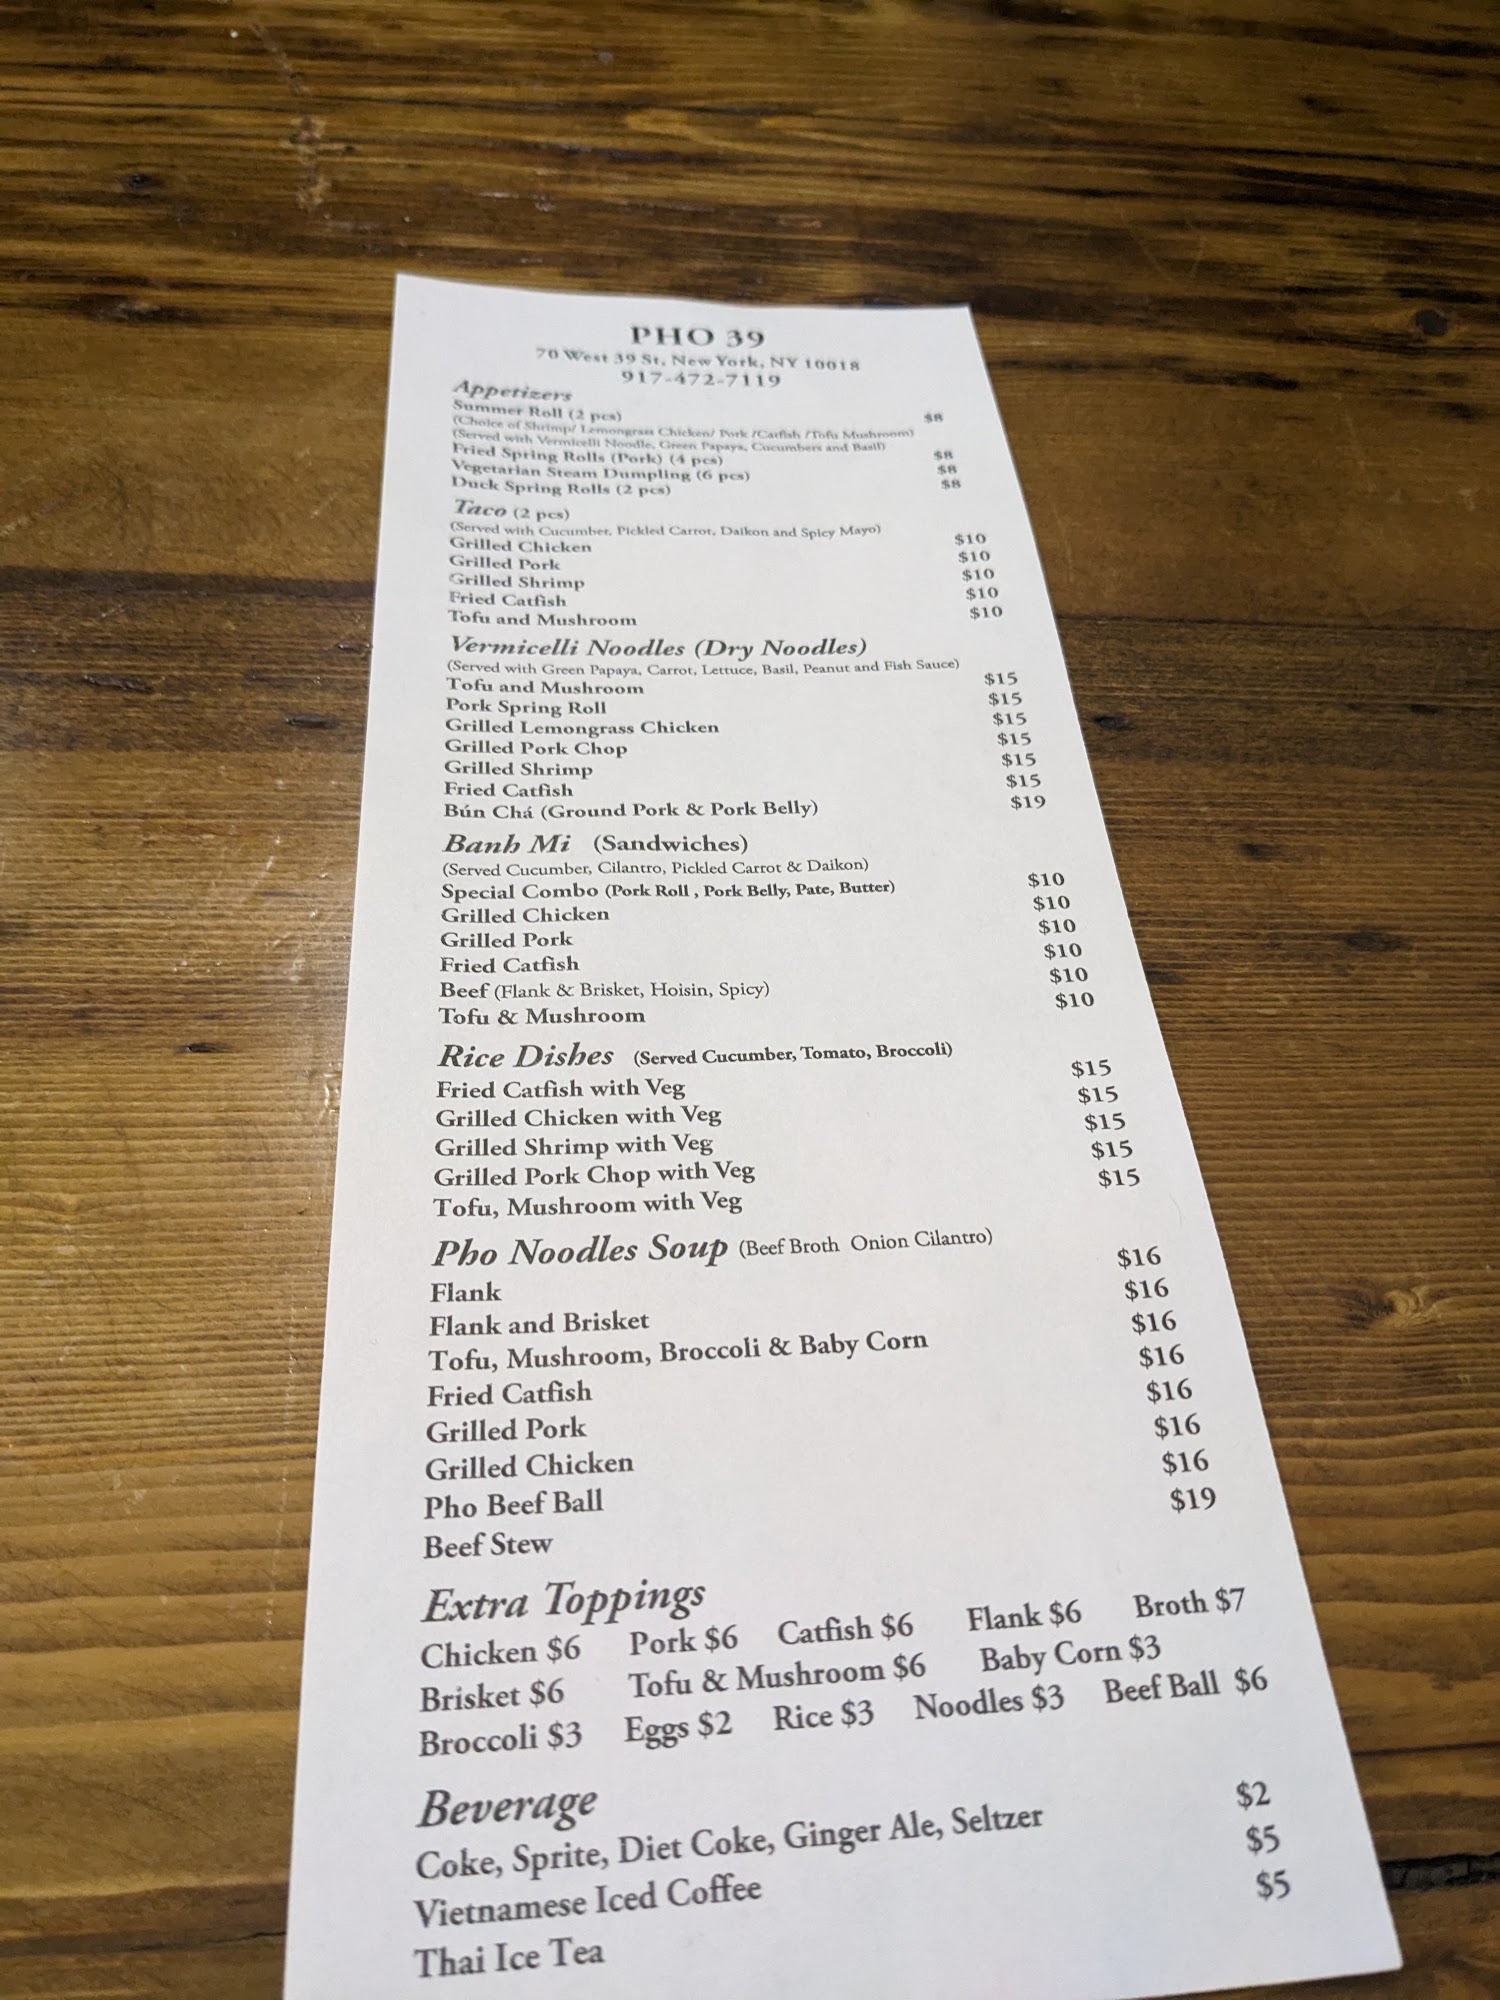 PHO 39
70 West 39 St, New York, NY 10018
917-472-7119
Appetizers
Summer Roll (2 pcs) $8
(Choice of Shrimp/ Lemongrass Chicken/ Pork /Catfish /Tofu Mushroom)
(Served with Vermicelli Noodle, Green Papaya, Cucumbers and Basil)
Fried Spring Rolls (Pork) (4 pcs) $8
Vegetarian Steam Dumpling (6 pcs) $8
Duck Spring Rolls (2 pcs) $8
Taco (2 pcs)
(Served with Cucumber, Pickled Carrot, Daikon and Spicy Mayo)
Grilled Chicken $10
Grilled Pork $10
Grilled Shrimp $10
Fried Catfish $10
Tofu and Mushroom $10
Vermicelli Noodles (Dry Noodles)
(Served with Green Papaya, Carrot, Lettuce, Basil, Peanut and Fish Sauce)
Tofu and Mushroom $15
Pork Spring Roll $15
Grilled Lemongrass Chicken $15
Grilled Pork Chop $15
Grilled Shrimp $15
Fried Catfish $15
Bún Chá (Ground Pork & Pork Belly) $19
Banh Mi (Sandwiches)
(Served Cucumber, Cilantro, Pickled Carrot & Daikon)
Special Combo (Pork Roll , Pork Belly, Pate, Butter) $10
Grilled Chicken $10
Grilled Pork $10
Fried Catfish $10
Beef (Flank & Brisket, Hoisin, Spicy) $10
Tofu & Mushroom $10
Rice Dishes (Served Cucumber, Tomato, Broccoli)
Fried Catfish with Veg $15
Grilled Chicken with Veg $15
Grilled Shrimp with Veg $15
Grilled Pork Chop with Veg $15
Tofu, Mushroom with Veg $15
Pho Noodles Soup (Beef Broth Onion Cilantro)
Flank $16
Flank and Brisket $16
Tofu, Mushroom, Broccoli & Baby Corn $16
Fried Catfish $16
Grilled Pork $16
Grilled Chicken $16
Pho Beef Ball $16
Beef Stew $19
Extra Toppings
Chicken $6 Pork $6 Catfish $6 Flank $6 Broth $7
Brisket $6 Tofu & Mushroom $6 Baby Corn $3
Broccoli $3 Eggs $2 Rice $3 Noodles $3 Beef Ball $6
Beverage
Coke, Sprite, Diet Coke, Ginger Ale, Seltzer $2
Vietnamese Iced Coffee $5
Thai Ice Tea $5